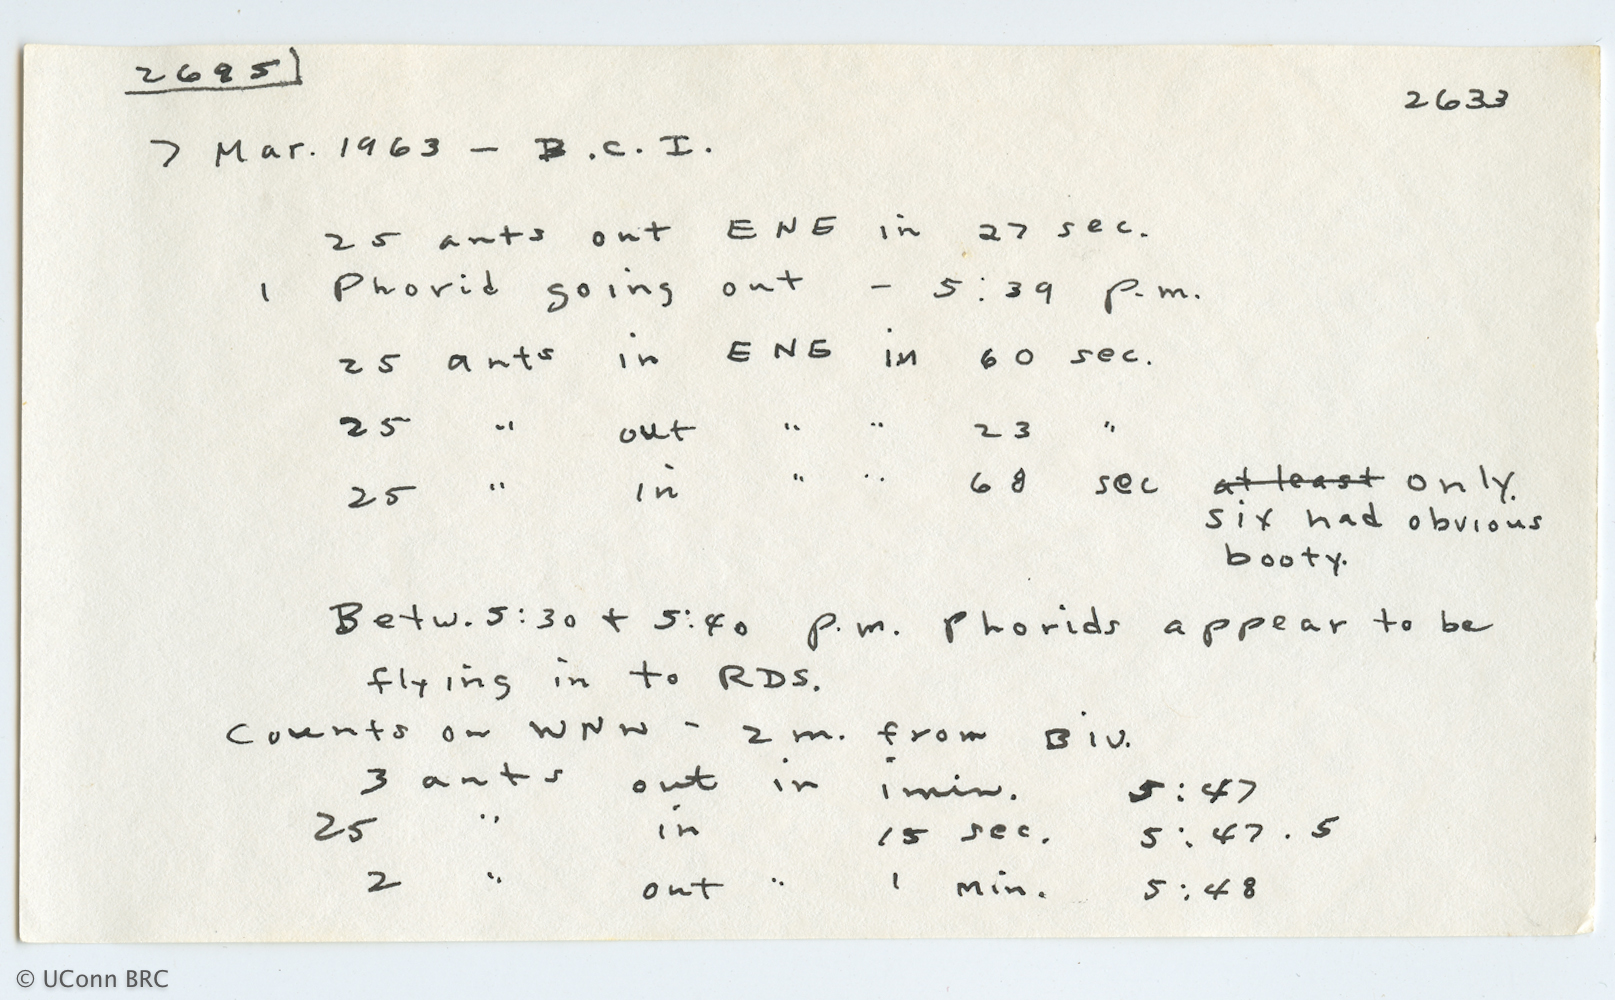 2695
2633
7 Mar. 1963 – B.C.I.
25 ants out ENE in 27 sec.
1 Phorid going out – 5:39 p.m.
25 ants in ENE in 60 sec.
25 " out " " 23 "
25 " in " " 68 sec at least only
six had obvious
booty.
Betw. 5:30 + 5:40 p.m. Phorids appear to be
flying in to RDS.
Counts on WNW – 2 m. from Biv.
3 ants out in 1 min. 5:47
25 " in 15 sec. 5:47.5
2 " out " 1 min. 5:48
© UConn BRC